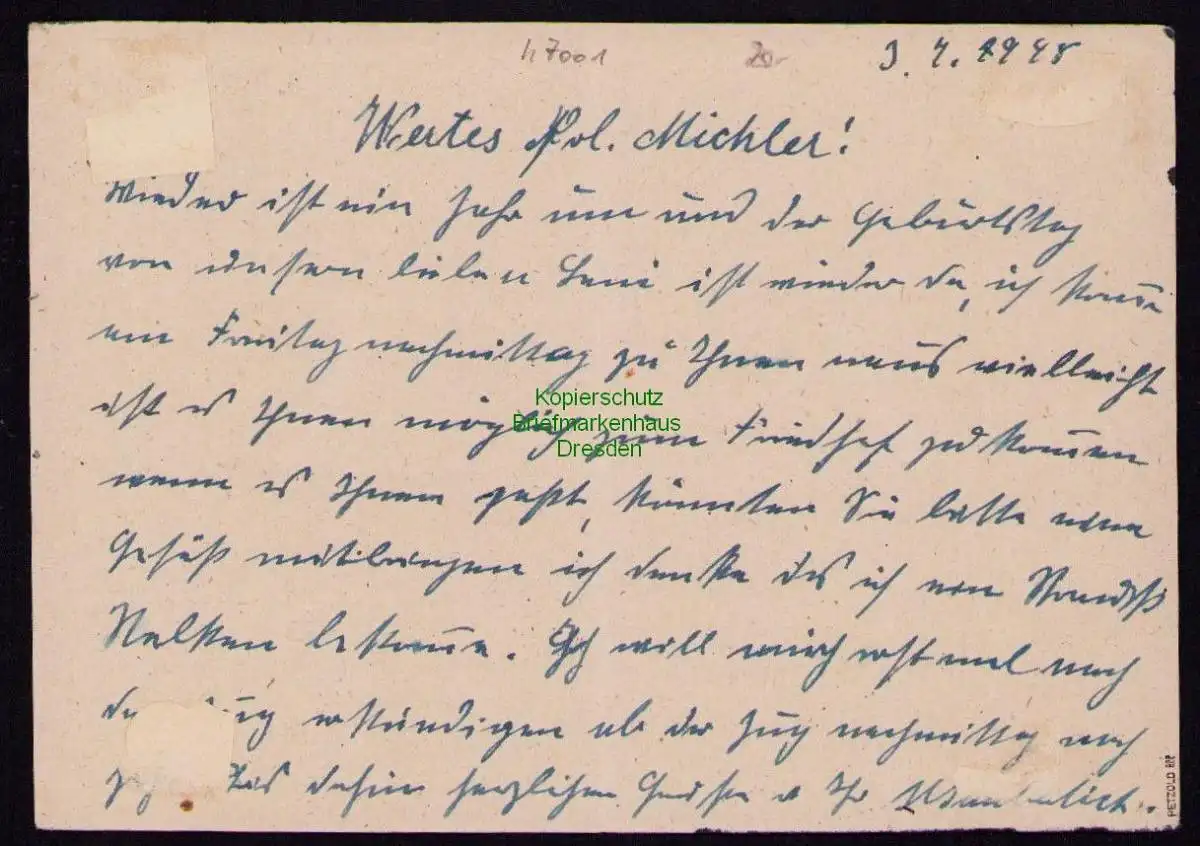 h7001 20,- 3. 4. 1948
Wertes Frl. Michler!
Wieder ist ein Jahr um und der Geburtstag
von unsern lieben Leni ist wieder da, ich komme
am Freitag nachmittag zu Ihnen raus vielleicht
ist es Ihnen möglich zum Friedhof zu kommen
wenn es Ihnen paßt, könnten Sie bitte eine
Gefäß mitbringen ich denke das ich ein
Nelken bekomme. Ich will mich erst mal nach
erkundigen ob der Zug nachmittag noch
Bis dahin herzlichen Grüße v Ihr
Kopierschutz
Briefmarkenhaus
Dresden
PETZOLD BPP